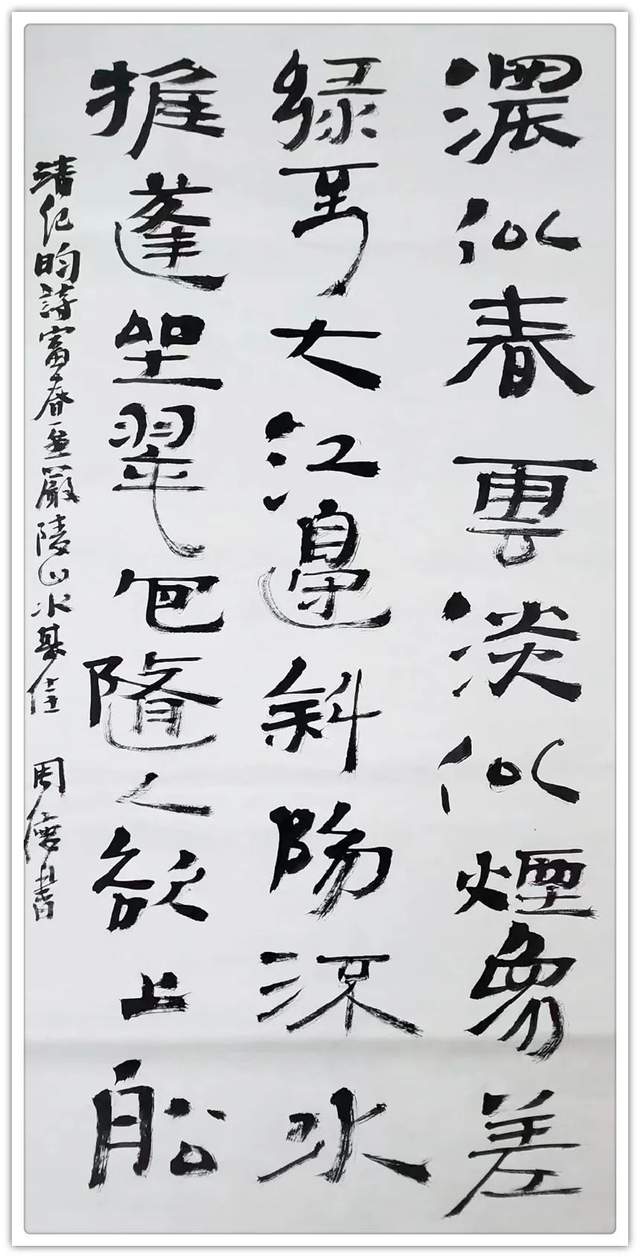 濃似春雲淡似煙參差
緑到大江邊斜陽流水
推蓬坐翠色隨人欲上船
清紀昀詩富春至嚴陵山水甚佳 周書